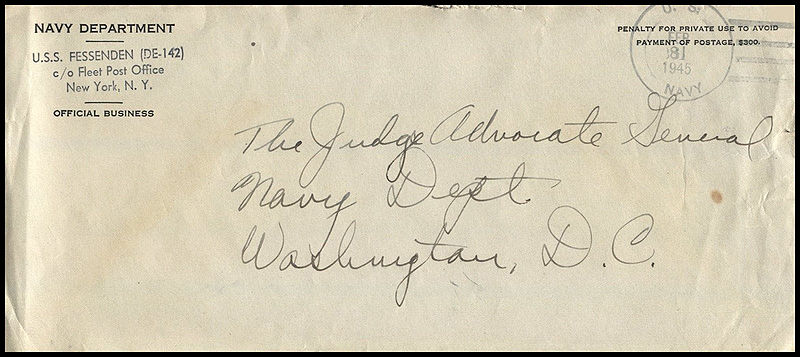 NAVY DEPARTMENT
U.S.S. FESSENDEN (DE-142)
c/o Fleet Post Office
New York, N. Y.
OFFICIAL BUSINESS
PENALTY FOR PRIVATE USE TO AVOID
PAYMENT OF POSTAGE, $300.
U. S.
FEB
1945
NAVY
The Judge Advocate General
Navy Dept.
Washington, D. C.